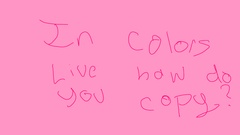 In Colors
Live how do
you copy?